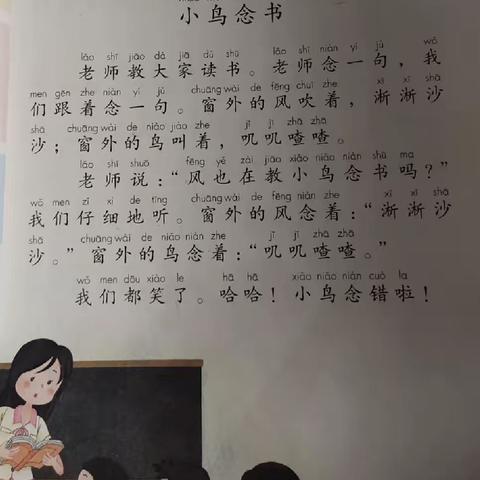 小鸟念书
lǎo shī jiāo dà jiā dú shū lǎo shī niàn yí jù wǒ
老师教大家读书。老师念一句，我
men gēn zhe niàn yí jù chuāng wài de fēng chuī zhe xī xī shā
们跟着念一句。窗外的风吹着，淅淅沙
shā chuāng wài de niǎo jiào zhe jī jī zhā zhā
沙；窗外的鸟叫着，叽叽喳喳。
lǎo shī shuō fēng yě zài jiāo xiǎo niǎo niàn shū ma
老师说：“风也在教小鸟念书吗？”
wǒ men zǐ xì de tīng chuāng wài de fēng niàn zhe xī xī shā
我们仔细地听。窗外的风念着：“淅淅沙
shā chuāng wài de niǎo niàn zhe jī jī zhā zhā
沙。”窗外的鸟念着：“叽叽喳喳。”
wǒ men dōu xiào le hā hā xiǎo niǎo niàn cuò la
我们都笑了。哈哈！小鸟念错啦！